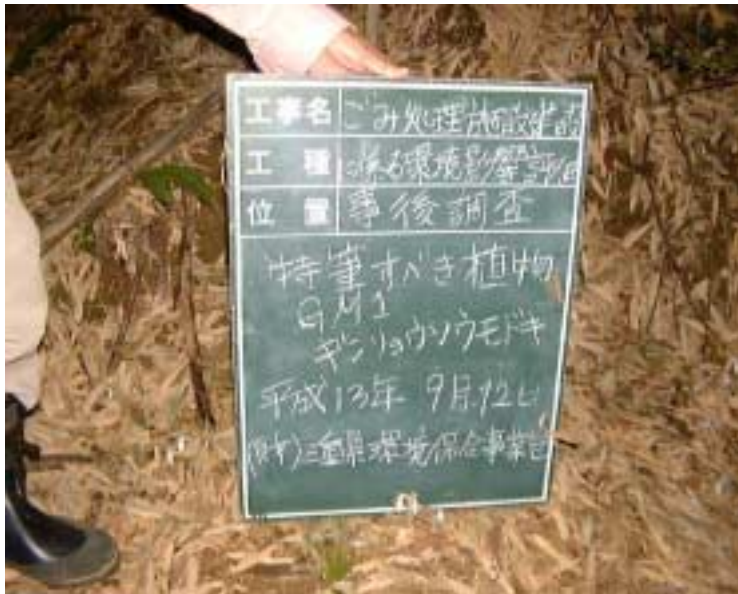 工事名 ごみ処理施設建設
工種 に係る環境影響評価
位置 事後調査
特筆すべき植物
GM1
ギンリョウソウモドキ
平成13年 9月12日
(財)三重県環境保全事業団